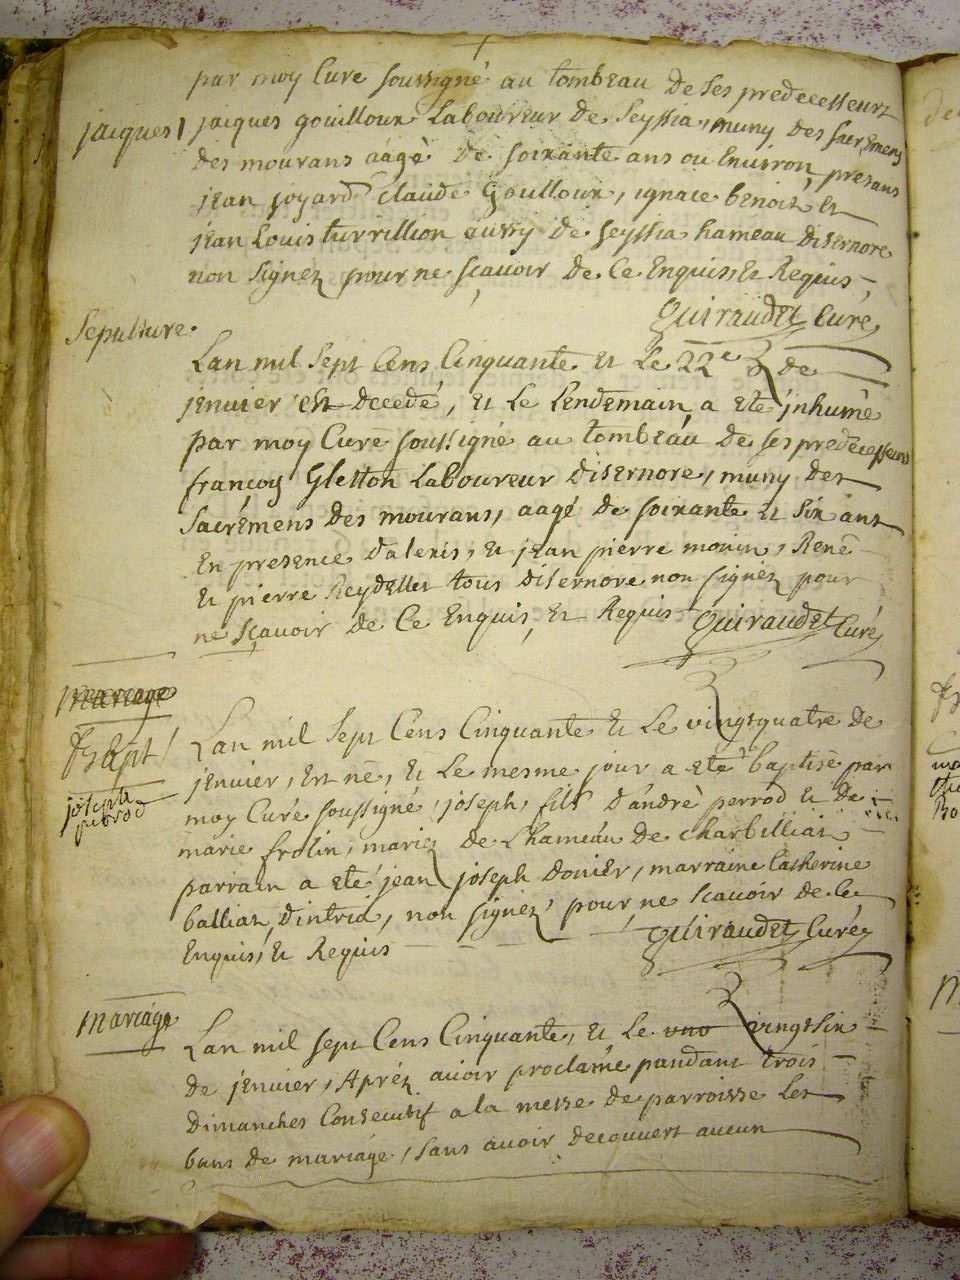 par moy Curé soussigné au tombeau de ses predecesseurs
jaiques jaiques gouilloux Laboureur de Seyssia, muny des sacremens
des mourans aagé de soixante ans ou Environ, presans
jean joyard Claude Goulloux, ignace benoit Et
jean Louis turrillion aussy de seyssia hameau disernore
non signez pour ne sçavoir de Ce Enquis, Et Requis
Guiraudet Curé
Sepulture.
Lan mil sept Cens Cinquante Et Le 22e de
jenvier est decedé, Et Le Lendemain a eté jnhumé
par moy Curé soussigné au tombeau de ses predecesseurs
françois Gletton Laboureur disernore, muny des
Sacremens des mourans, aagé de soixante Et six ans
En presence dalexis, Et jean pierre monin, René
Et pierre Reydellet tous disernore non signez pour
ne sçavoir de Ce Enquis, Et Requis Guiraudet Curé
mariage
Bapt
joseph
perrod
Lan mil sept Cens Cinquante Et Le vingtquatre de
jenvier, Est né, Et Le mesme jour a eté baptisé par
moy Curé soussigné, joseph, fils d'andré perrod Et de
marie frolin, mariez de Lhameau de Charbilliat
parrain a eté jean joseph donier, marraine Catherine
balliat, dintriat, non signez pour ne scavoir de Ce
Enquis, Et Requis Guiraudet Curé
Mariage
Lan mil sept Cens Cinquante, Et Le vingtsix
de jenvier, Aprez avoir proclamé pandant trois
dimanches Consecutif a la messe de parroisse Les
bans de mariage, sans avoir decouvert aucun